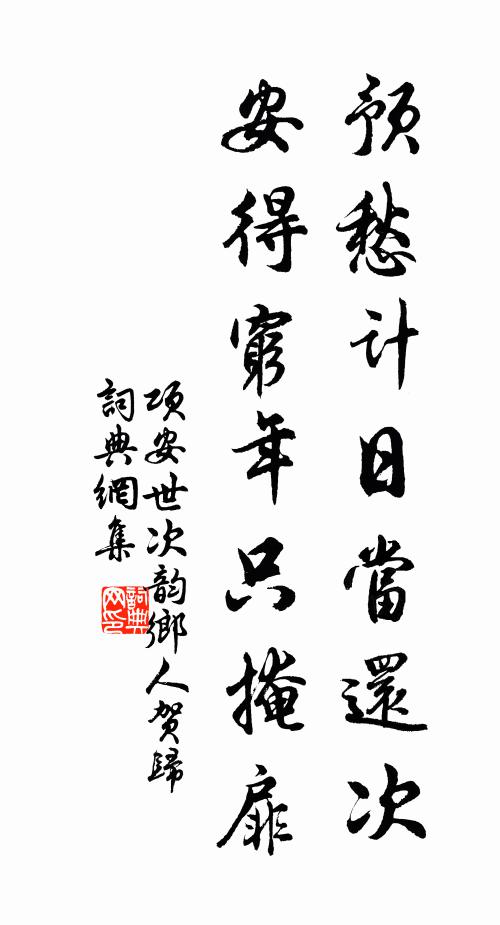 預愁計日當還次
安得窮年只掩扉
項安世次韵鄉人賀歸
詞典網集
詞典网印